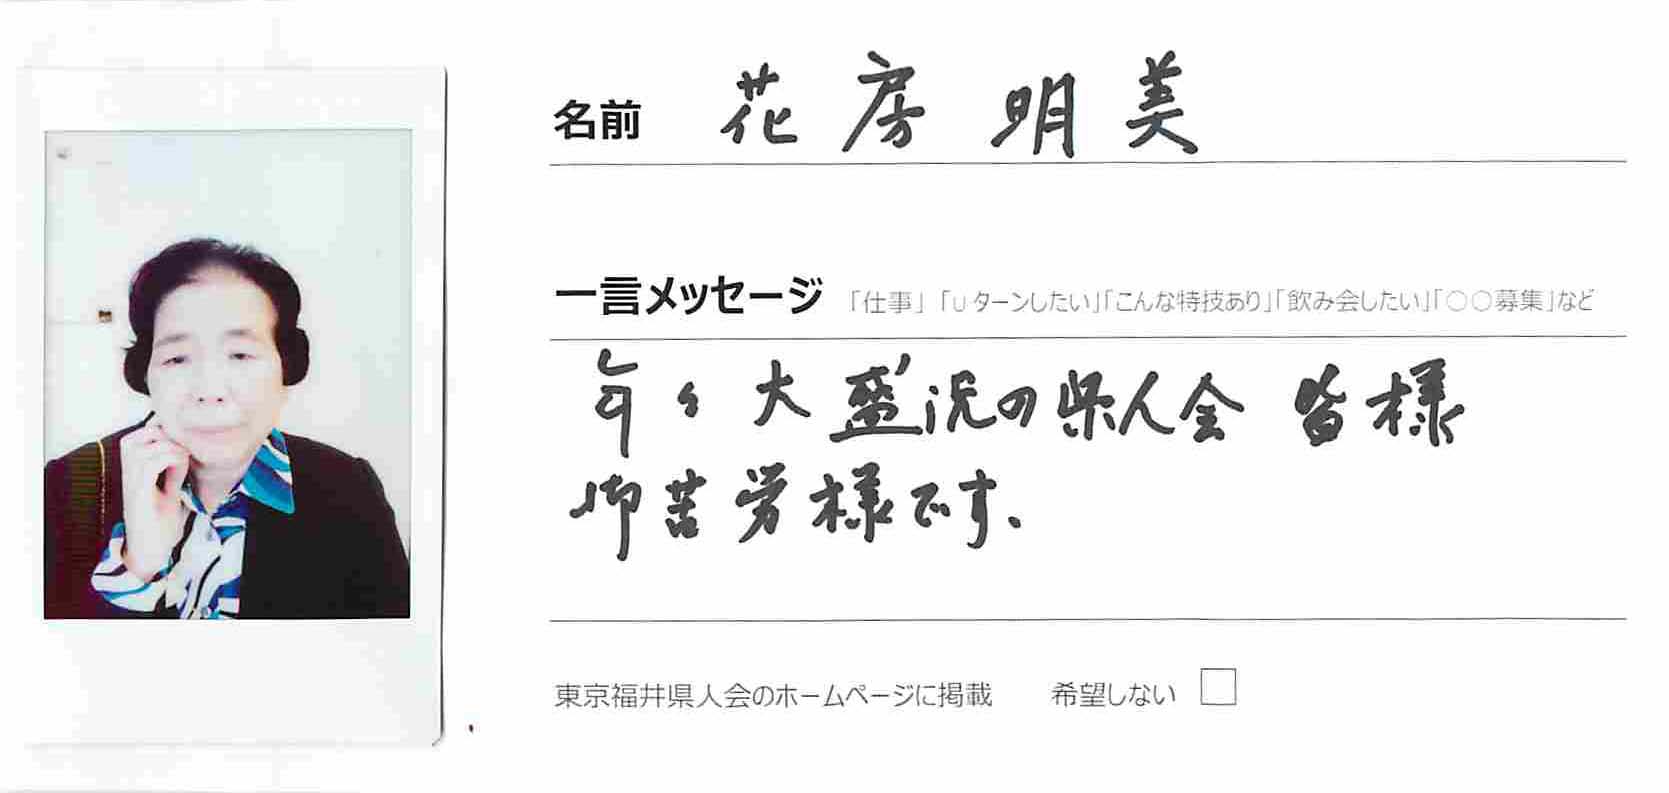 名前 花房 明美
一言メッセージ 「仕事」「Uターンしたい」「こんな特技あり」「飲み会したい」「○○募集」など
年々大盛況の県人会 皆様
御苦労様です、
東京福井県人会のホームページに掲載 希望しない □